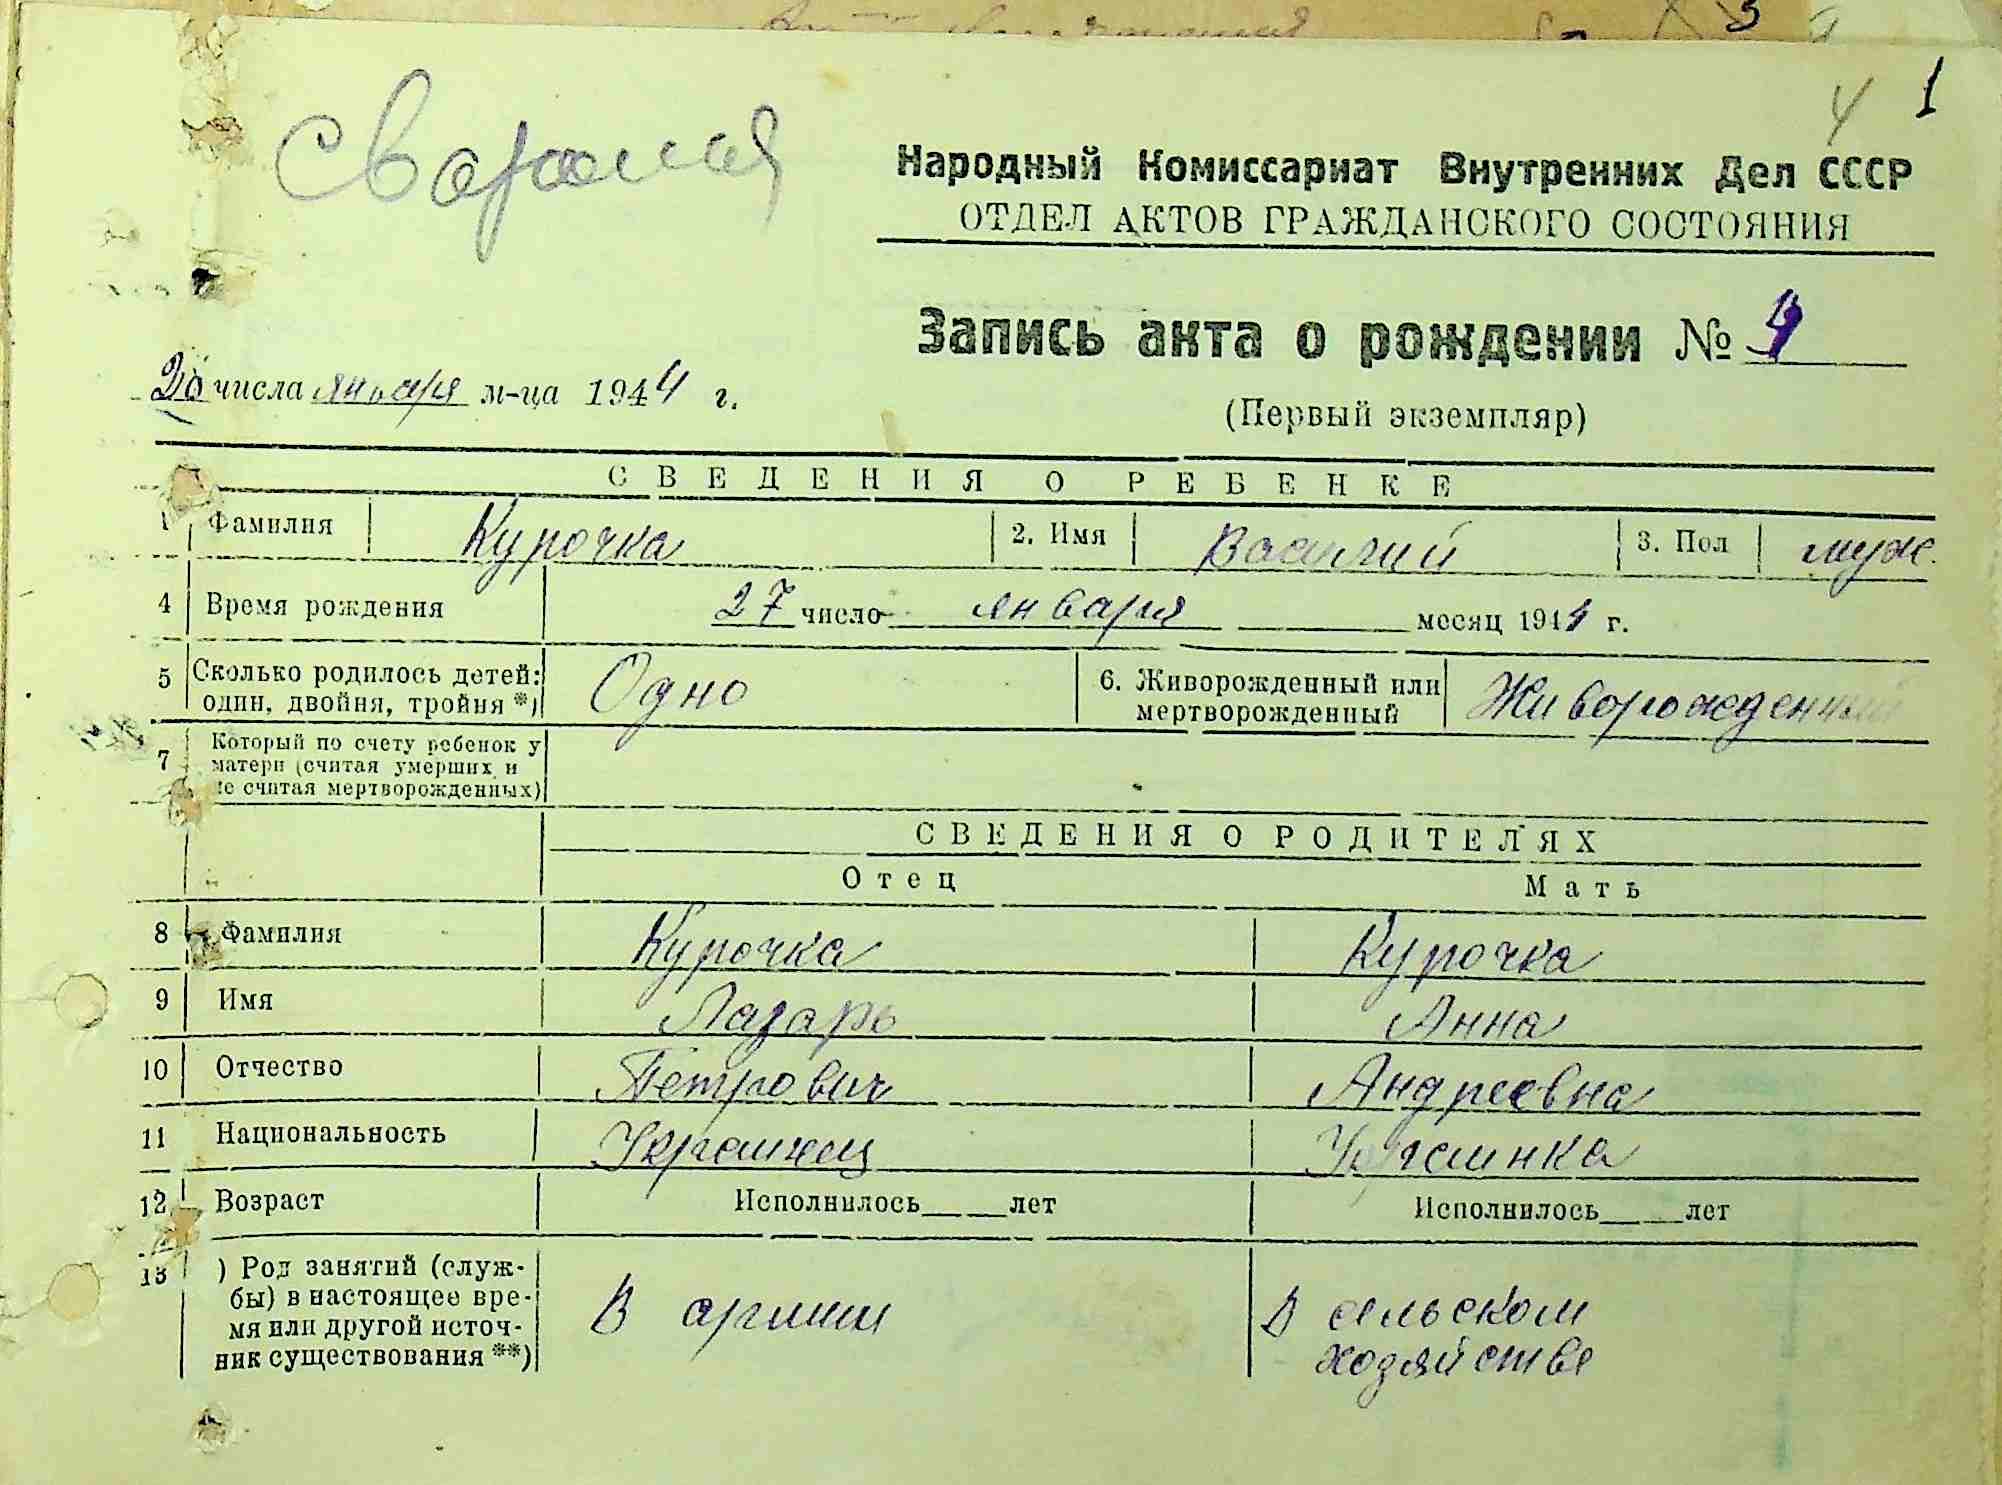 4 1
Народный Комиссариат Внутренних Дел СССР
ОТДЕЛ АКТОВ ГРАЖДАНСКОГО СОСТОЯНИЯ
Запись акта о рождении № 4
числа января м-ца 1944 г.
(Первый экземпляр)
СВЕДЕНИЯ О РЕБЕНКЕ
1 Фамилия Курочка 2. Имя Василий 3. Пол муж.
4 Время рождения 27 число января месяц 1944 г.
5 Сколько родилось детей: Одно 6. Живорожденный или Живорожденный
один, двойня, тройня *) мертворожденный
Который по счету ребенок у
7 матери (считая умерших и
не считая мертворожденных)
СВЕДЕНИЯ О РОДИТЕЛЯХ
Отец Мать
8 Фамилия Курочка Курочка
9 Имя Лазарь Анна
10 Отчество Петрович Андреевна
11 Национальность Украинец Украинка
12 Возраст Исполнилось лет Исполнилось лет
13 ) Род занятий (служ-
бы) в настоящее вре- В армии В сельском
мя или другой источ- хозяйстве
ник существования **)